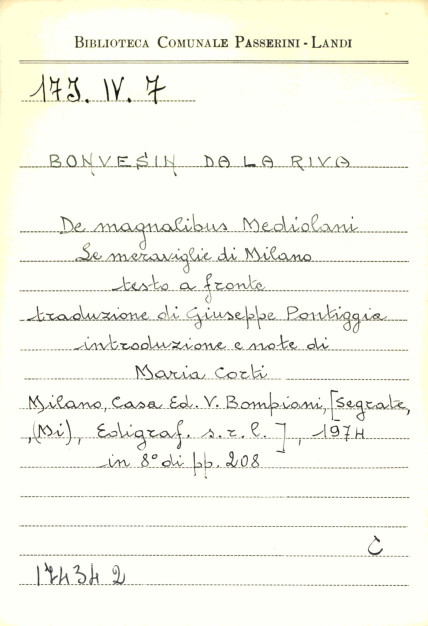 BIBLIOTECA COMUNALE PASSERINI - LANDI
17J. IV. 7
BONVESIN DA LA RIVA
De magnalibus Mediolani
Le meraviglie di Milano
testo a fronte
traduzione di Giuseppe Pontiggia
introduzione e note di
Maria Corti
Milano, Casa Ed. V. Bompiani, [Segrate,
(Mi), Edigraf. s.r.l.], 1974
in 8° di pp. 208
C
174342